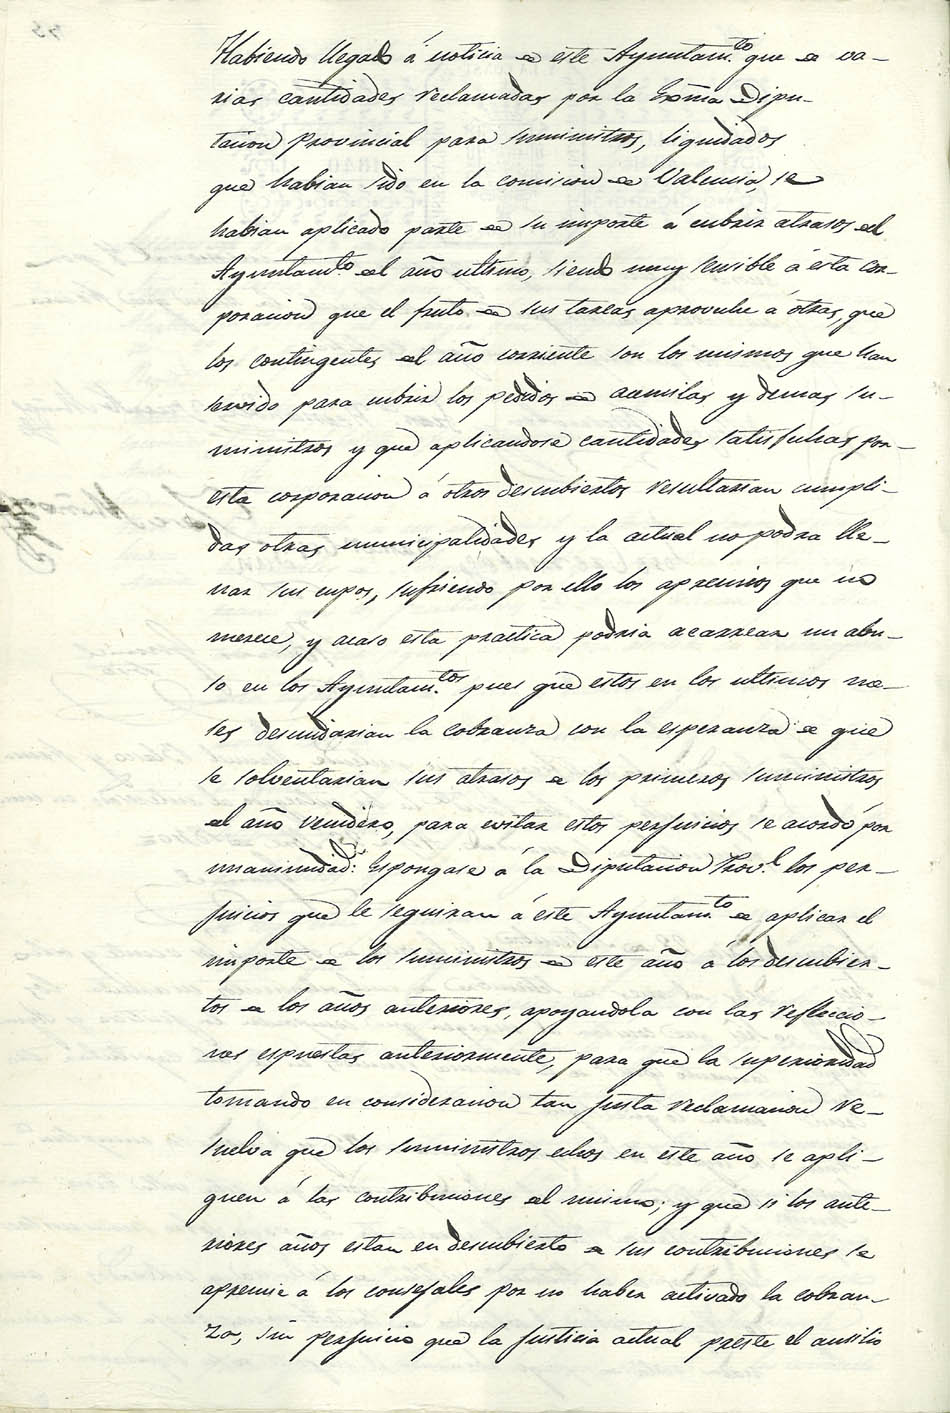 Habiendo llegado á noticia de este Ayuntam.to que de va-
rias cantidades reclamadas por la Exma Dipu-
tacion Provincial para suministros, liquidados
que habian sido en la comision de Valencia, se
habian aplicado parte de su importe á cubrir atrasos del
Ayuntam.to del año ultimo, siendo muy sensible á esta cor-
poracion que el fruto de sus tareas aproveche á otras, que
los contingentes del año corriente son los mismos que han
servido para cubrir los pedidos de acemilas y demas su-
ministros y que aplicandose cantidades satisfechas por
esta corporacion á otros descubiertos resultarian cumpli-
das otras municipalidades y la actual no podra lle-
nar sus cupos, sufriendo por ello los apremios que no
merece, y acaso esta practica podria acarrear un abu-
so en los Ayuntam.tos pues que estos en los ultimos me-
ses descuidarian la cobranza con la esperanza de que
se solventarian sus atrasos de los primeros suministros
del año venidero, para evitar estos perjuicios se acordó por
unanimidad: Espongase á la Diputacion Prov.l los per-
juicios que le seguiran á este Ayuntam.to de aplicar el
importe de los suministros de este año á los descubier-
tos de los años anteriores, apoyandola con las reflecio-
nes espuestas anteriormente, para que la superioridad
tomando en consideracion tan justa reclamacion re-
suelva que los suministros echos en este año se apli-
quen á las contribuciones del mismo; y que si los ante-
riores años estan en descubierto de sus contribuciones se
apremie á los consejales por no haber activado la cobran-
za, sin perjuicio que la justicia actual preste el ausilio